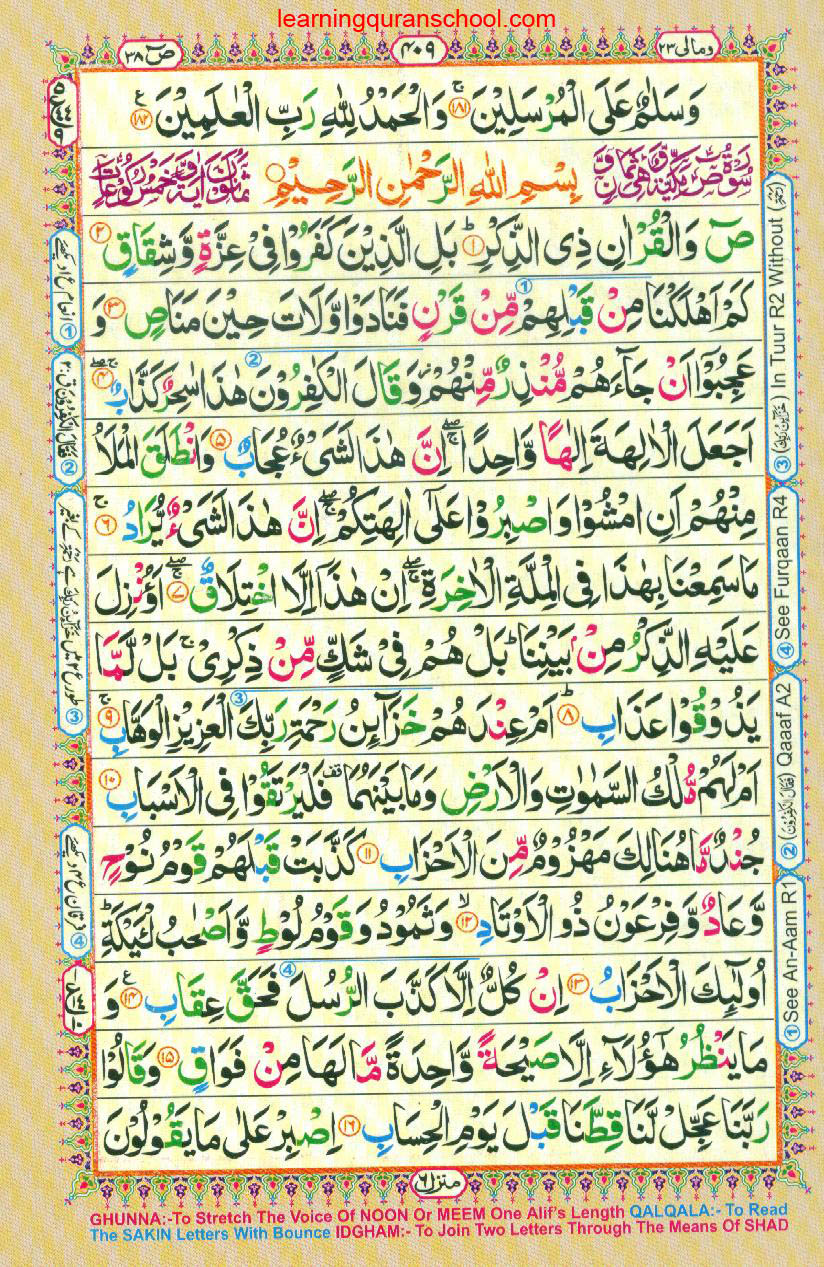 learningquranschool.com
ومالی ۲۳
۴۰۹
صٓ ۳۸
وَسَلٰمٌ عَلَی الْمُرْسَلِیْنَ ۱۸۱ وَالْحَمْدُ لِلّٰهِ رَبِّ الْعٰلَمِیْنَ ۱۸۲
بِسْمِ اللّٰهِ الرَّحْمٰنِ الرَّحِیْمِ
صٓ وَالْقُرْاٰنِ ذِی الذِّكْرِ ؕ ۱ بَلِ الَّذِیْنَ كَفَرُوْا فِیْ عِزَّةٍ وَّشِقَاقٍ ۲
كَمْ اَهْلَكْنَا مِنْ قَبْلِهِمْ مِّنْ قَرْنٍ فَنَادَوْا وَّلَاتَ حِیْنَ مَنَاصٍ ۳ وَ
عَجِبُوْۤا اَنْ جَآءَهُمْ مُّنْذِرٌ مِّنْهُمْ ؗ وَقَالَ الْكٰفِرُوْنَ هٰذَا سٰحِرٌ كَذَّابٌ ۴
اَجَعَلَ الْاٰلِهَةَ اِلٰهًا وَّاحِدًا ۚۖ اِنَّ هٰذَا لَشَیْءٌ عُجَابٌ ۵ وَانْطَلَقَ الْمَلَاُ
مِنْهُمْ اَنِ امْشُوْا وَاصْبِرُوْا عَلٰۤی اٰلِهَتِكُمْ ۚۖ اِنَّ هٰذَا لَشَیْءٌ یُّرَادُ ۶
مَا سَمِعْنَا بِهٰذَا فِی الْمِلَّةِ الْاٰخِرَةِ ۚۖ اِنْ هٰذَاۤ اِلَّا اخْتِلَاقٌ ۷ اَؤُنْزِلَ
عَلَیْهِ الذِّكْرُ مِنْۢ بَیْنِنَا ؕ بَلْ هُمْ فِیْ شَكٍّ مِّنْ ذِكْرِیْ ۚ بَلْ لَّمَّا
یَذُوْقُوْا عَذَابِ ؕ ۸ اَمْ عِنْدَهُمْ خَزَآئِنُ رَحْمَةِ رَبِّكَ الْعَزِیْزِ الْوَهَّابِ ۹
اَمْ لَهُمْ مُّلْكُ السَّمٰوٰتِ وَالْاَرْضِ وَمَا بَیْنَهُمَا فَلْیَرْتَقُوْا فِی الْاَسْبَابِ ۱۰
جُنْدٌ مَّا هُنَالِكَ مَهْزُوْمٌ مِّنَ الْاَحْزَابِ ۱۱ كَذَّبَتْ قَبْلَهُمْ قَوْمُ نُوْحٍ
وَّعَادٌ وَّفِرْعَوْنُ ذُو الْاَوْتَادِ ۱۲ وَثَمُوْدُ وَقَوْمُ لُوْطٍ وَّاَصْحٰبُ لْـَٔیْكَةِ ؕ
اُولٰٓئِكَ الْاَحْزَابُ ۱۳ اِنْ كُلٌّ اِلَّا كَذَّبَ الرُّسُلَ فَحَقَّ عِقَابِ ۱۴ وَ
مَا یَنْظُرُ هٰۤؤُلَآءِ اِلَّا صَیْحَةً وَّاحِدَةً مَّا لَهَا مِنْ فَوَاقٍ ۱۵ وَقَالُوْا
رَبَّنَا عَجِّلْ لَّنَا قِطَّنَا قَبْلَ یَوْمِ الْحِسَابِ ۱۶ اِصْبِرْ عَلٰی مَا یَقُوْلُوْنَ
منزل ۶
① See An-Aam R1
② (فَقَالَ الْكٰفِرُوْنَ) Qaaaf A2
④ See Furqaan R4
③ In Tuur R2 Without
GHUNNA:-To Stretch The Voice Of NOON Or MEEM One Alif's Length QALQALA:- To Read
The SAKIN Letters With Bounce IDGHAM:- To Join Two Letters Through The Means Of SHAD